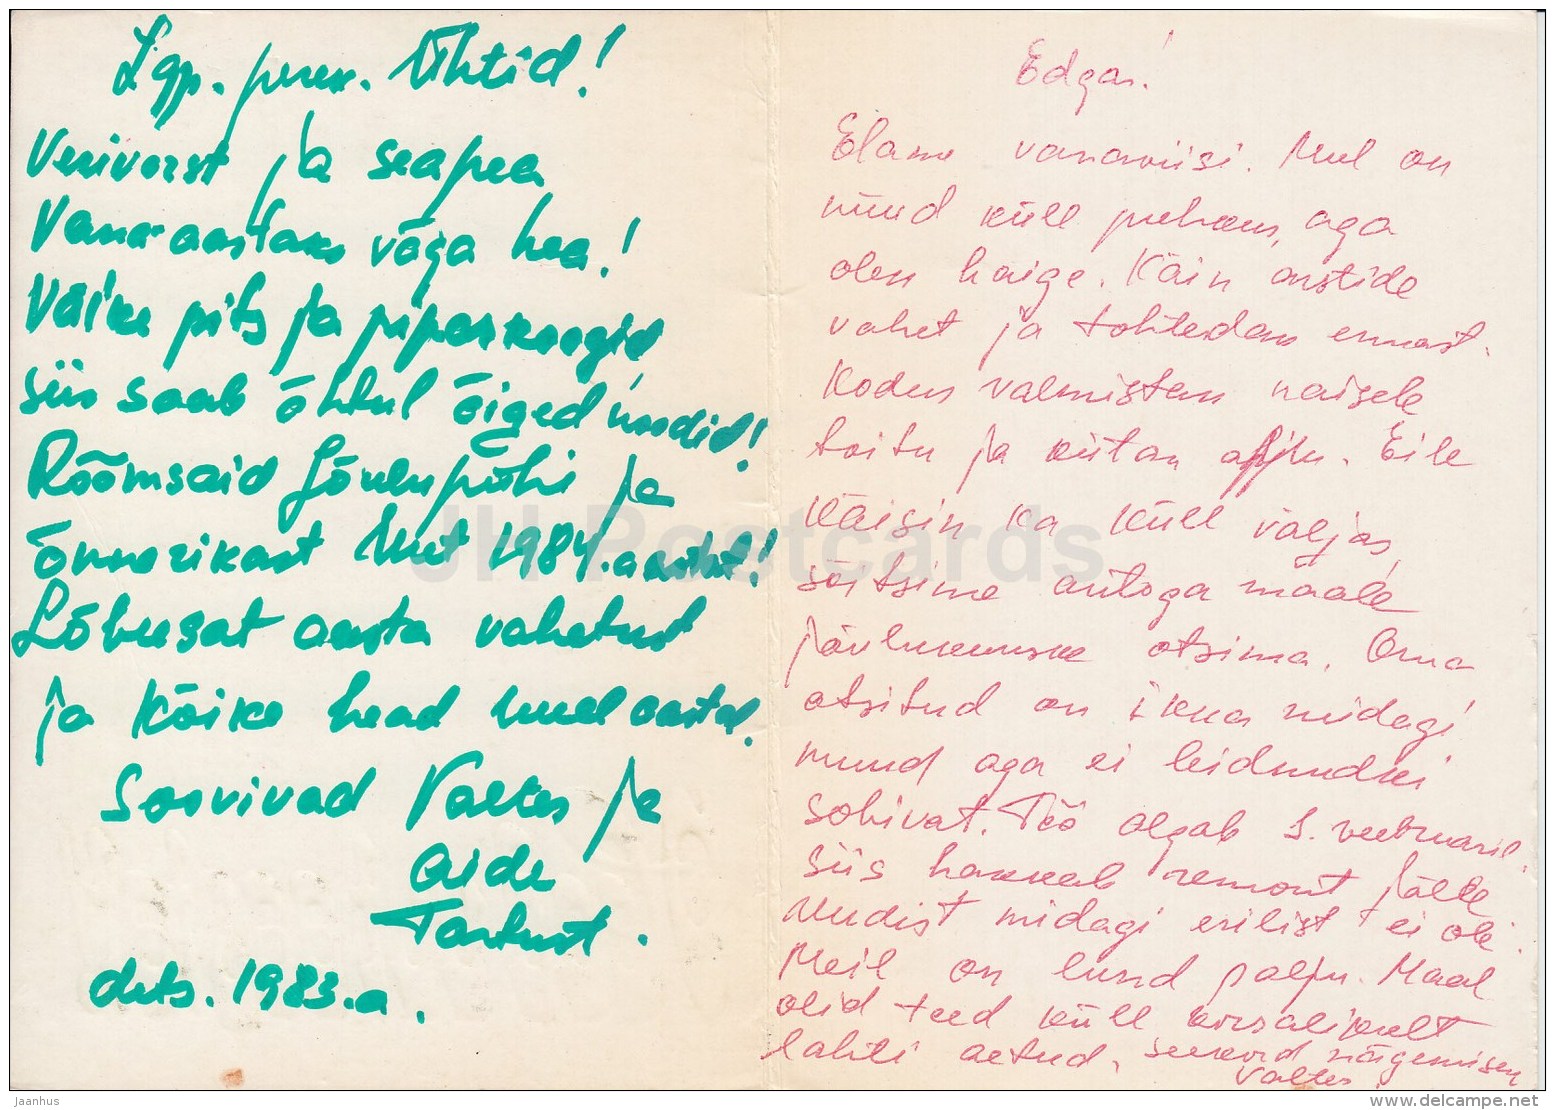 Lgp. peren. Ühtid!
Verivorst ja seapea
Vana-aastaks väga hea!
Väike pits ja piparkoogid
siis saab õhtul õiged moodid!
Rõõmsaid Jõulupühi ja
õnnerikast Uut 1984. aastat!
Lõbusat aasta vahetust
ja kõike head uuel aastal.
Soovivad Valter ja
Aide
Tartust.
dets. 1983.a.
Edgar!
Elame vanaviisi. Mul on
nüüd küll puhkus, aga
olen haige. Käin arstide
vahet ja tohterdan ennast.
Kodus valmistan naisele
toitu ja kütan ahju. Eile
käisin ka küll väljas,
sõitsime autoga maale
jõulukuuske otsima. Oma
otsitud on ikka midagi
muud aga ei leidnudki
sobivat. Töö algab 1. veebruaril.
siis hakkab remont jälle
Uudist midagi erilist ei ole.
Meil on lund palju. Maal
olid teed küll korralikult
lahti aetud. seekord nägemiseni
Valter.
JH Postcards
Jaanhus
www.delcampe.net